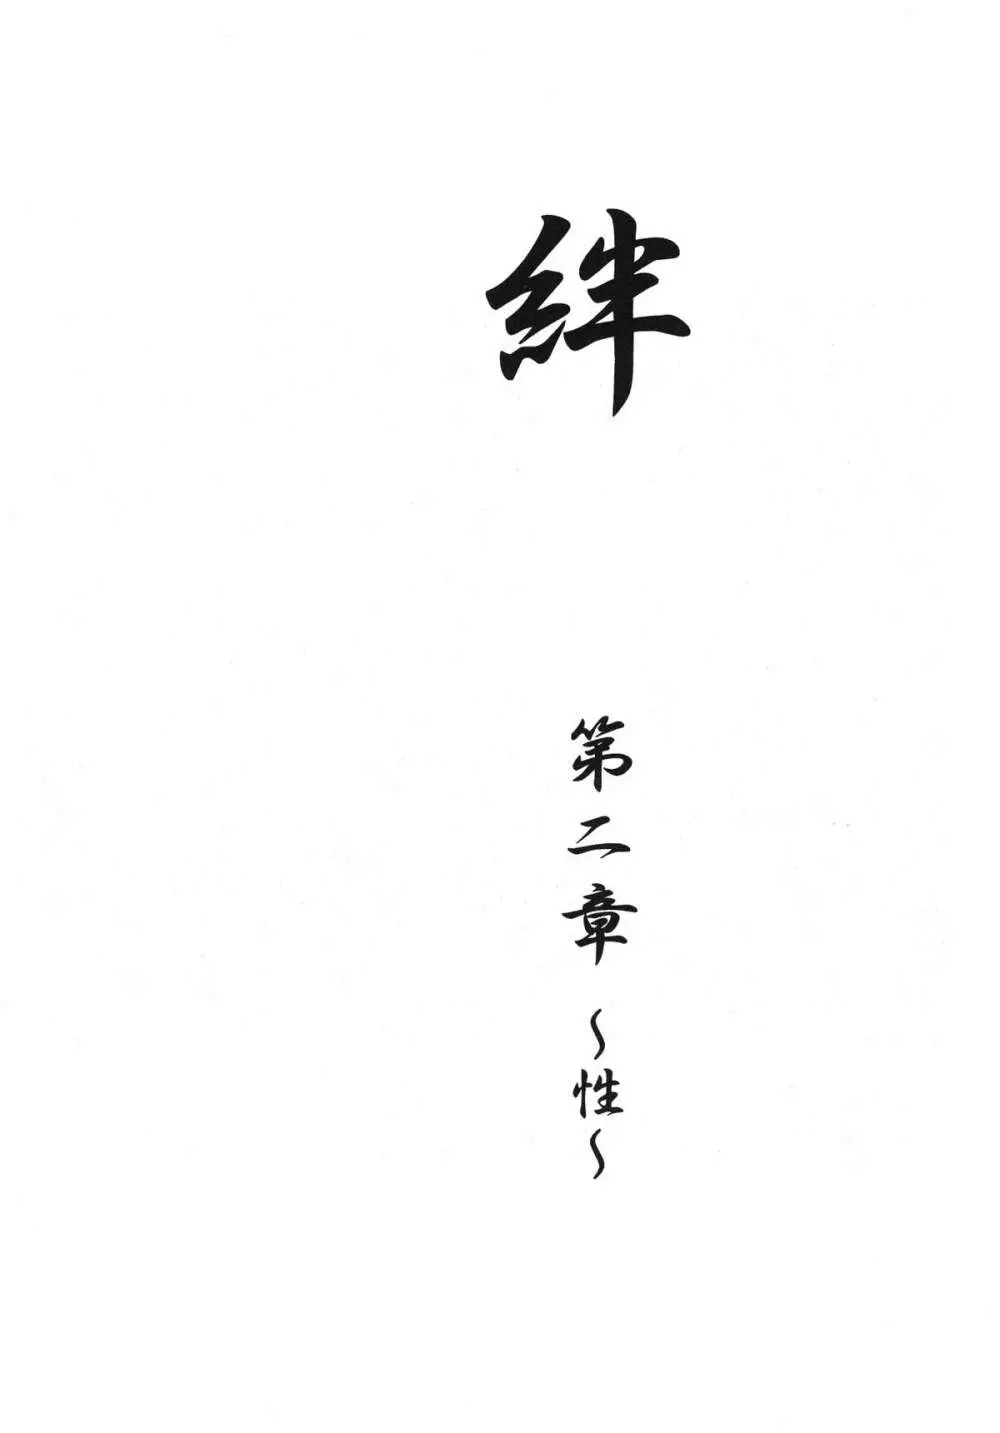 絆
第二章
～性～